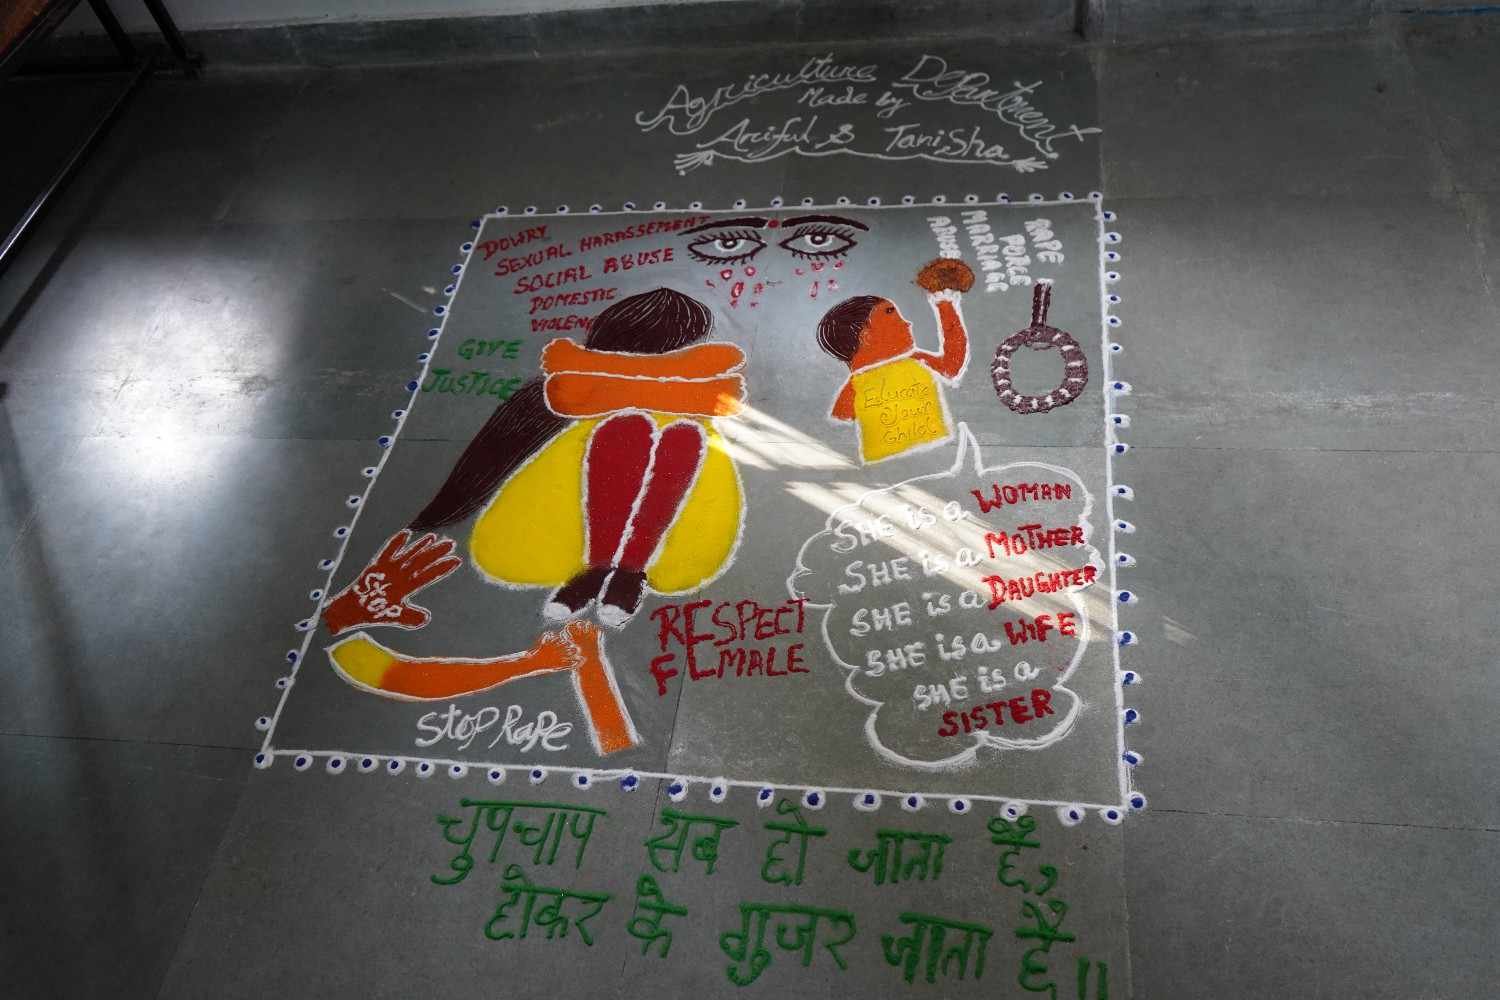 Agriculture Department
Made by
Arciful & Tanisha
DOWRY
SEXUAL HARASSEMENT
SOCIAL ABUSE
DOMESTIC
VIOLENC
GIVE
JUSTICE
RAPE
FORCE
MARRIAGE
ABUSE
Educate
Your
Child
SHE is a WOMAN
SHE is a MOTHER
SHE is a DAUGHTER
SHE is a WIFE
SHE is a
SISTER
STOP
RESPECT
FEMALE
Stop Rape
चुपचाप सब हो जाता है,
होकर के गुजर जाता है॥